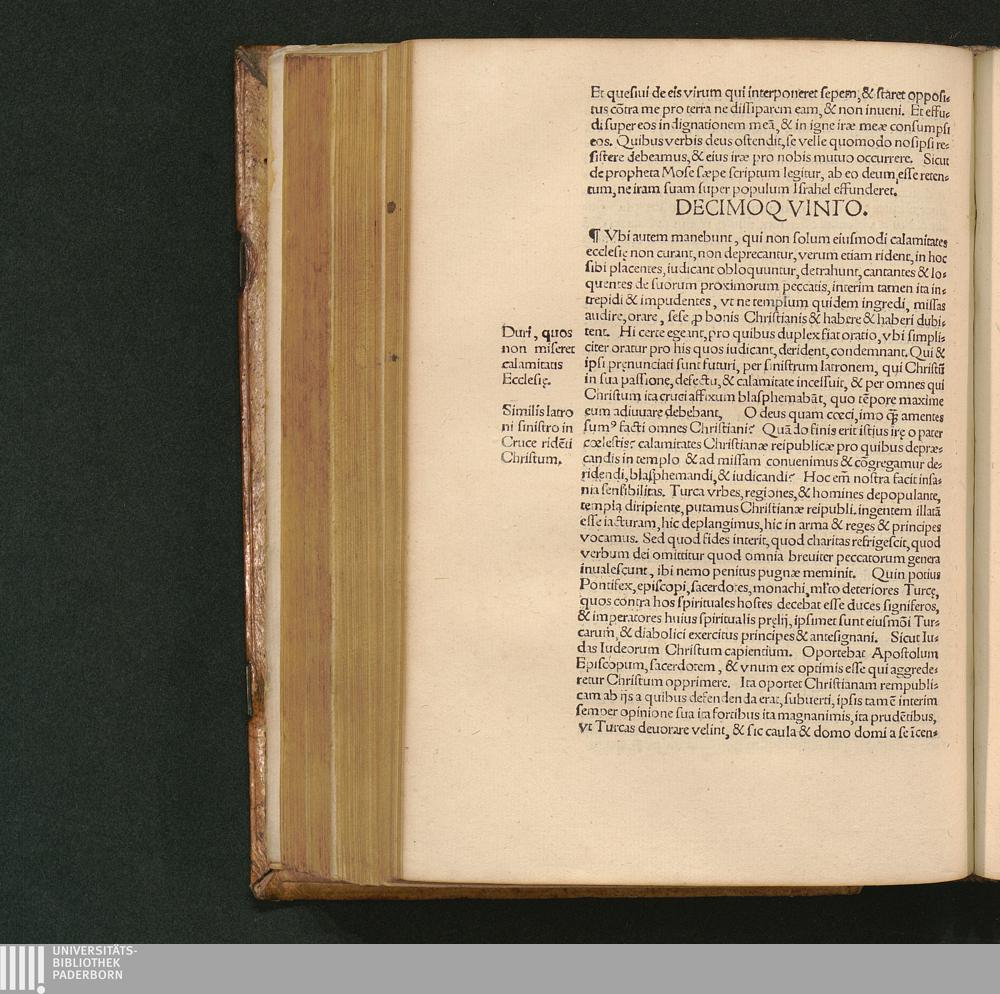 Et quesiui de eis virum qui interponeret sepem, & staret opposi⸗
tus cōtra me pro terra ne dissiparem eam, & non inueni. Et effu⸗
di super eos indignationem meā, & in igne iræ meæ consumpsi
eos. Quibus verbis deus ostendit, se velle quomodo nosipsi re⸗
sistere debeamus, & eius iræ pro nobis mutuo occurrere. Sicut
de propheta Mose sæpe scriptum legitur, ab eo deum, esse reten⸗
tum, ne iram suam super populum Israhel effunderet.
DECIMOQVINTO.
¶ Vbi autem manebunt, qui non solum eiusmodi calamitates
ecclesię non curant, non deprecantur, verum etiam rident, in hoc
sibi placentes, iudicant obloquuntur, detrahunt, cantantes & lo⸗
quentes de suorum proximorum peccatis, interim tamen ita in⸗
trepidi & impudentes, vt ne templum quidem ingredi, missas
audire, orare, sese ꝓ bonis Christianis & habere & haberi dubi⸗
tent. Hi certe egeant, pro quibus duplex fiat oratio, vbi simpli⸗
citer oratur pro his quos iudicant, derident, condemnant. Qui &
ipsi pręnunciati sunt futuri, per sinistrum latronem, qui Christū
in sua passione, defectu, & calamitate incessuit, & per omnes qui
Christum ita cruci affixum blasphemabāt, quo tēpore maxime
eum adiuuare debebant, O deus quam cœci, imo q̄ꝫ amentes
sumꝰ facti omnes Christiani? Quādo finis erit istius irę o pater
cœlestis? calamitates Christianæ reipublicæ pro quibus depræ⸗
candis in templo & ad missam conuenimus & cōgregamur de⸗
ridendi, blasphemandi, & iudicandi? Hoc em̄ nostra facit insa⸗
nia sensibilitas. Turca vrbes, regiones, & homines depopulante,
templa diripiente, putamus Christianæ reipubli. ingentem illatā
esse iacturam, hic deplangimus, hic in arma & reges & principes
vocamus. Sed quod fides interit, quod charitas refrigescit, quod
verbum dei omittitur quod omnia breuiter peccatorum genera
inualescunt, ibi nemo penitus pugnæ meminit. Quin potius
Pontifex, episcopi, sacerdotes, monachi, ml̄to deteriores Turcę,
quos contra hos spirituales hostes decebat esse duces signiferos,
& imperatores huius spiritualis pręlij, ipsimet sunt eiusmōi Tur⸗
carum, & diabolici exercitus principes & antesignani. Sicut Iu⸗
das Iudeorum Christum capientium. Oportebat Apostolum
Episcopum, sacerdotem, & vnum ex optimis esse qui aggrede⸗
retur Christum opprimere. Ita oportet Christianam rempubli⸗
cam ab ijs a quibus defendenda erat, subuerti, ipsis tamē interim
semper opinione sua ita fortibus ita magnanimis, ita prudētibus,
vt Turcas deuorare velint, & sic caula & domo domi a se īcen⸗
Duri, quos
non miseret
calamitatis
Ecclesię.
Similis latro
ni sinistro in
Cruce ridēti
Christum.
UNIVERSITÄTS-
BIBLIOTHEK
PADERBORN